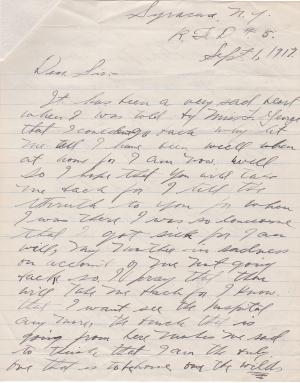 Syracuse, N.Y.
R.F.D # 5.
Sept 1, 1917.
Dear Sir:-
It has been a very sad heart
when I was told by Miss
that I go back why let
me all I have been well when
at home for I am now well
So I hoped that you would take
me back for I tell the
thruth to you for when
I was there I was so lonesome
that I got sick for I am
with my mother in sadness
on account of me not going
back so I pray that thou
will take me back for I know
that I want see the hospital
any more, the bunch that is
going from here makes me sad
to think that I am the only
one that is to be home one the wilds